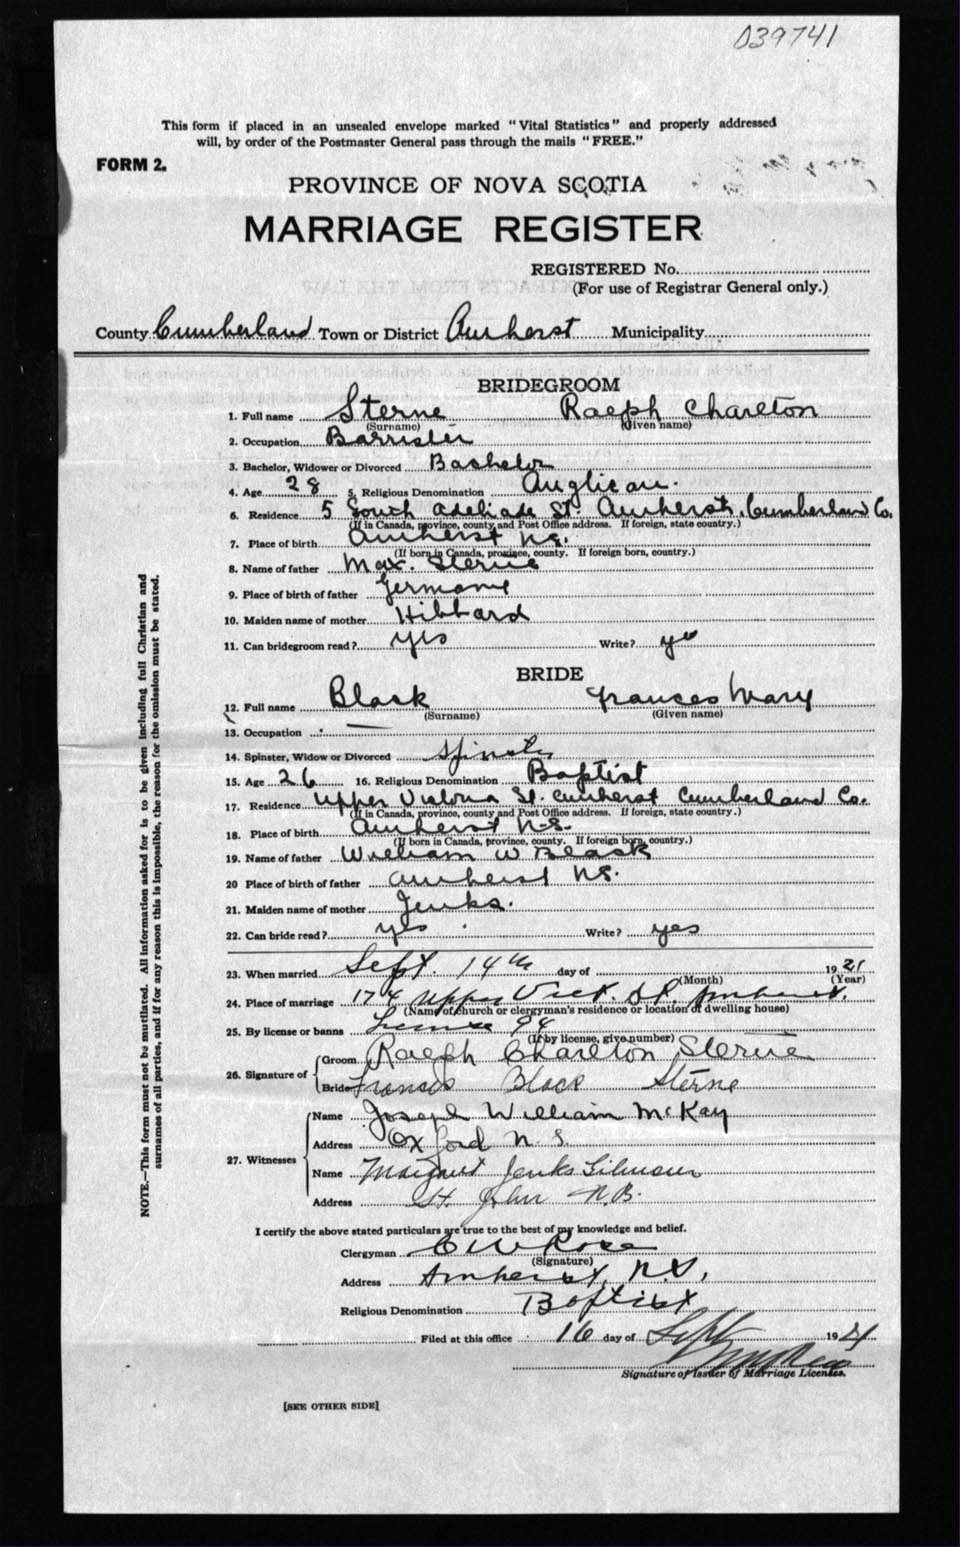 039741
This form if placed in an unsealed envelope marked "Vital Statistics" and properly addressed
will, by order of the Postmaster General pass through the mails "FREE."
FORM 2.
PROVINCE OF NOVA SCOTIA
MARRIAGE REGISTER
REGISTERED No.
(For use of Registrar General only.)
County Cumberland Town or District Amherst Municipality
BRIDEGROOM
1. Full name Sterne Ralph Charlton
(Surname) (Given name)
2. Occupation Barrister
3. Bachelor, Widower or Divorced Bachelor
4. Age 28 5. Religious Denomination Anglican.
6. Residence 5 South Adeliade St. Amherst, Cumberland Co.
(If in Canada, province, county and Post Office address. If foreign, state country.)
7. Place of birth Amherst N.S.
(If born in Canada, province, county. If foreign born, country.)
8. Name of father Max. Sterne
9. Place of birth of father Germany
10. Maiden name of mother Hibbard
11. Can bridegroom read? yes Write? yes
BRIDE
12. Full name Black Frances Mary
(Surname) (Given name)
13. Occupation
14. Spinster, Widow or Divorced Spinster
15. Age 26 16. Religious Denomination Baptist
17. Residence Upper Victoria St. Amherst Cumberland Co.
(If in Canada, province, county and Post Office address. If foreign, state country.)
18. Place of birth Amherst N.S.
(If born in Canada, province, county. If foreign born, country.)
19. Name of father William W Black
20 Place of birth of father Amherst N.S.
21. Maiden name of mother Jenks.
22. Can bride read? yes Write? yes
23. When married Sept. 14th day of 1921
(Month) (Year)
24. Place of marriage 174 Upper Vict. St. Amherst.
(Name of church or clergyman's residence or location of dwelling house)
25. By license or banns License 94
(If by license, give number)
26. Signature of Groom Ralph Charlton Sterne
Bride Frances Black Sterne
27. Witnesses Name Joseph William McKay
Address Oxford N.S.
Name Margaret Jenks Gilmour
Address St. John N.B.
I certify the above stated particulars are true to the best of my knowledge and belief.
Clergyman C W Rose
(Signature)
Address Amherst, N.S.,
Religious Denomination Baptist
Filed at this office 16 day of Sept 1921
Signature of Issuer of Marriage Licenses.
[SEE OTHER SIDE]
NOTE.—This form must not be mutilated. All information asked for is to be given including full Christian and
surnames of all parties, and if for any reason this is impossible, the reason for the omission must be stated.